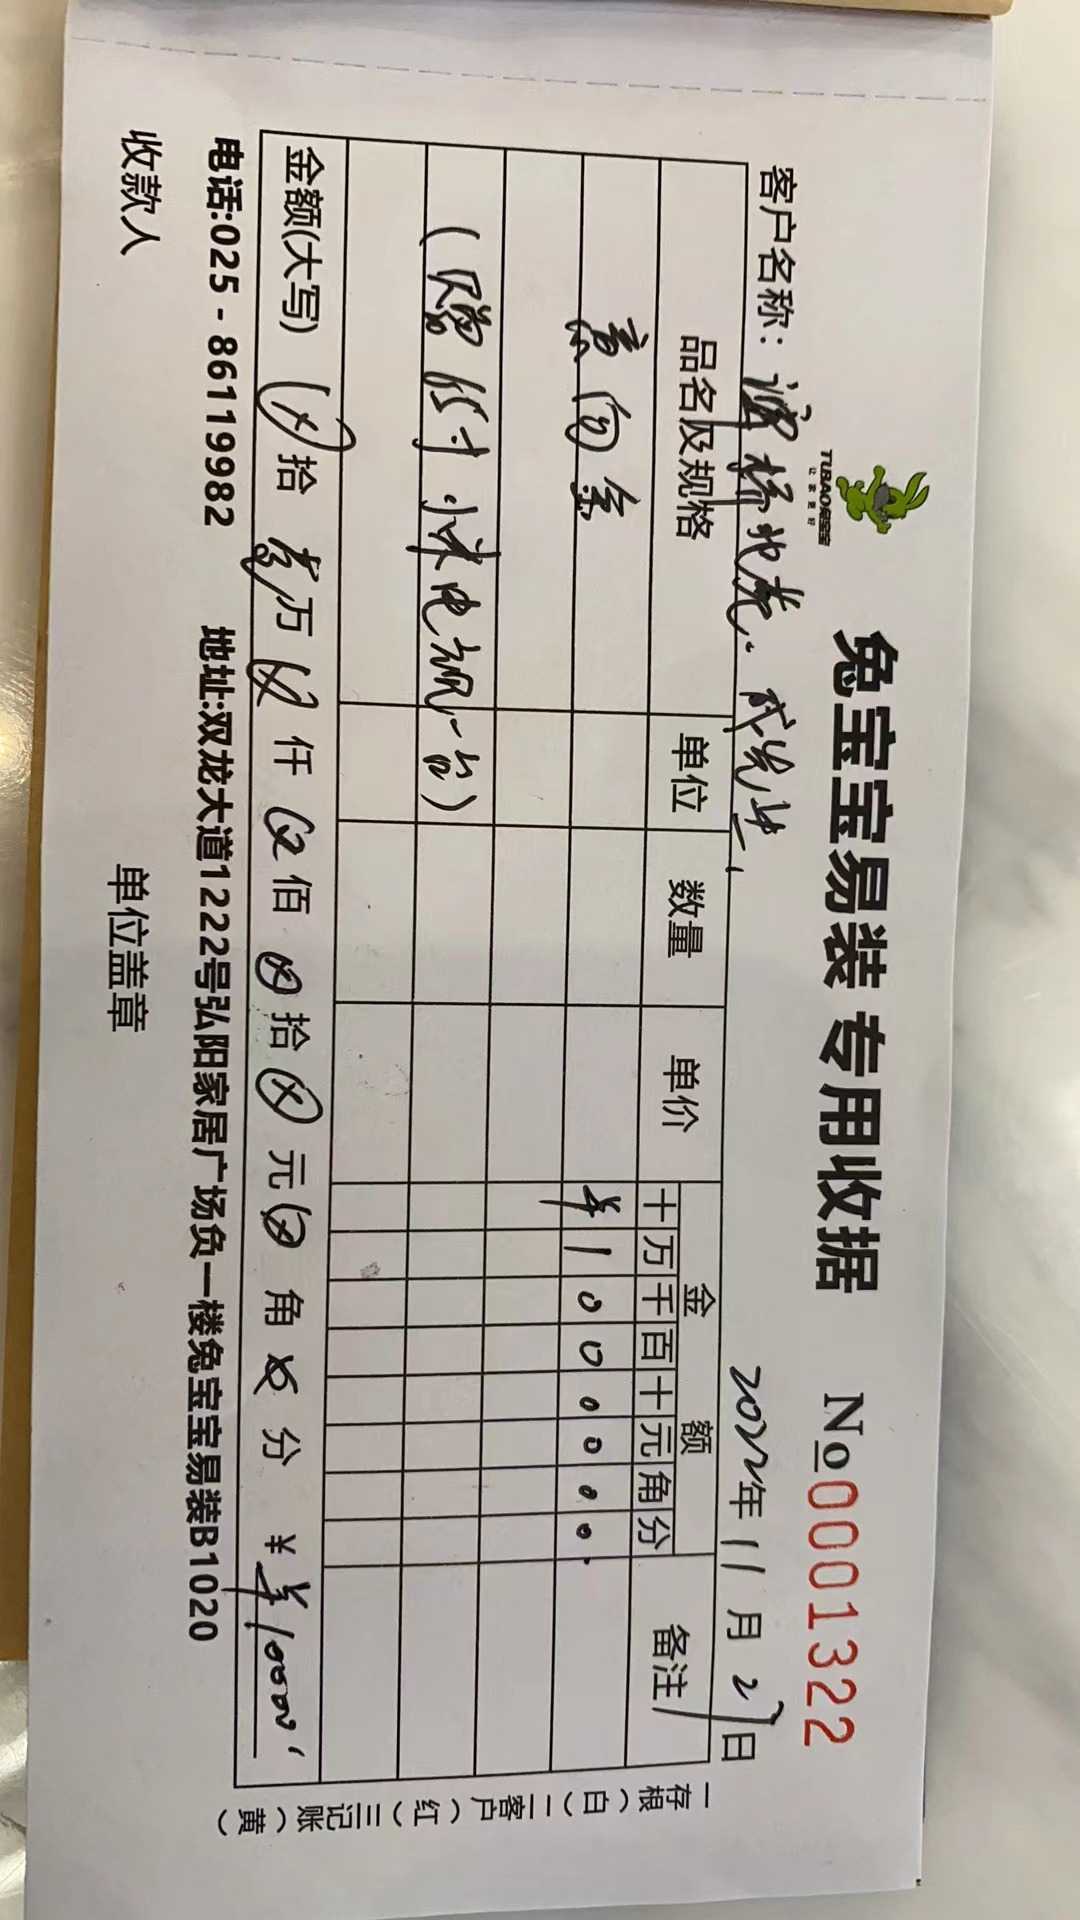 TUBAO兔宝宝
让家更好
兔宝宝易装 专用收据 No 0001322
客户名称： 成先生 2022年11月27日
品名及规格 单位 数量 单价 金额 备注
十万千百十元角分
意向金 ¥1000000
(赠65寸小米电视一台)
金额(大写) ⊗拾 壹万⊗仟⊗佰⊗拾⊗元⊗角⊗分 ¥ ¥10000
电话:025-86119982 地址:双龙大道1222号弘阳家居广场负一楼兔宝宝易装B1020
收款人 单位盖章
一存根（白）二客户（红）三记账（黄）